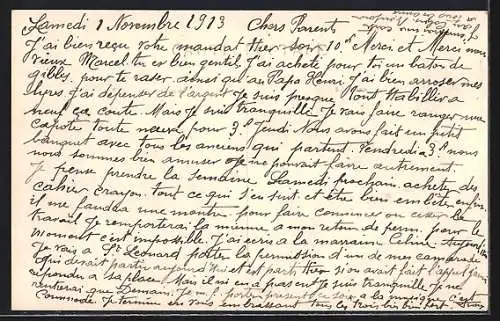 Samedi 1 Novembre 1913 Chers Parents
J'ai bien reçu votre mandat hier soir 10f Merci et Merci mon
vieux Marcel. tu es bien gentil J'ai acheté pour toi un baton de
gibbs. pour te raser. ainsi qu'au Papa Henri J'ai bien arroser mes
J'ai dépenser de l'argent Je suis presque tout Habiller a
neuf ça coute. Mais Je suis tranquille Je vais faire ranger une
capote toute neuve pour 3f Jeudi Nous avons fait un petit
banquet avec tous les anciens qui partent. Vendredi a 3f nous
nous sommes bien amuser on ne pouvait faire autrement.
Je pense prendre la semaine Samedi prochain. acheter des
cahier crayon. tout ce qui s'en suit et être bien embêter enfin
il me faudra une montre pour faire commencer ou cesser le
travail Je remporterai la mienne a mon retour de perm. pour le
moment c'est impossible. J'ai écris a la marraine Céline. Aujourd'hui
Je vais a St Léonard porter la permission d'un de mes camarade
Qui devait partir aujourd'hui et est parti hier si on avait fait l'appel J'aurai
répondu a sa place. Mais il n'en a pas eu Je suis tranquille Je ne
rentirai que Demain. présent ce soir a la musique c'est
commode. Je termine en vous embrassant tous les trois bien fort.